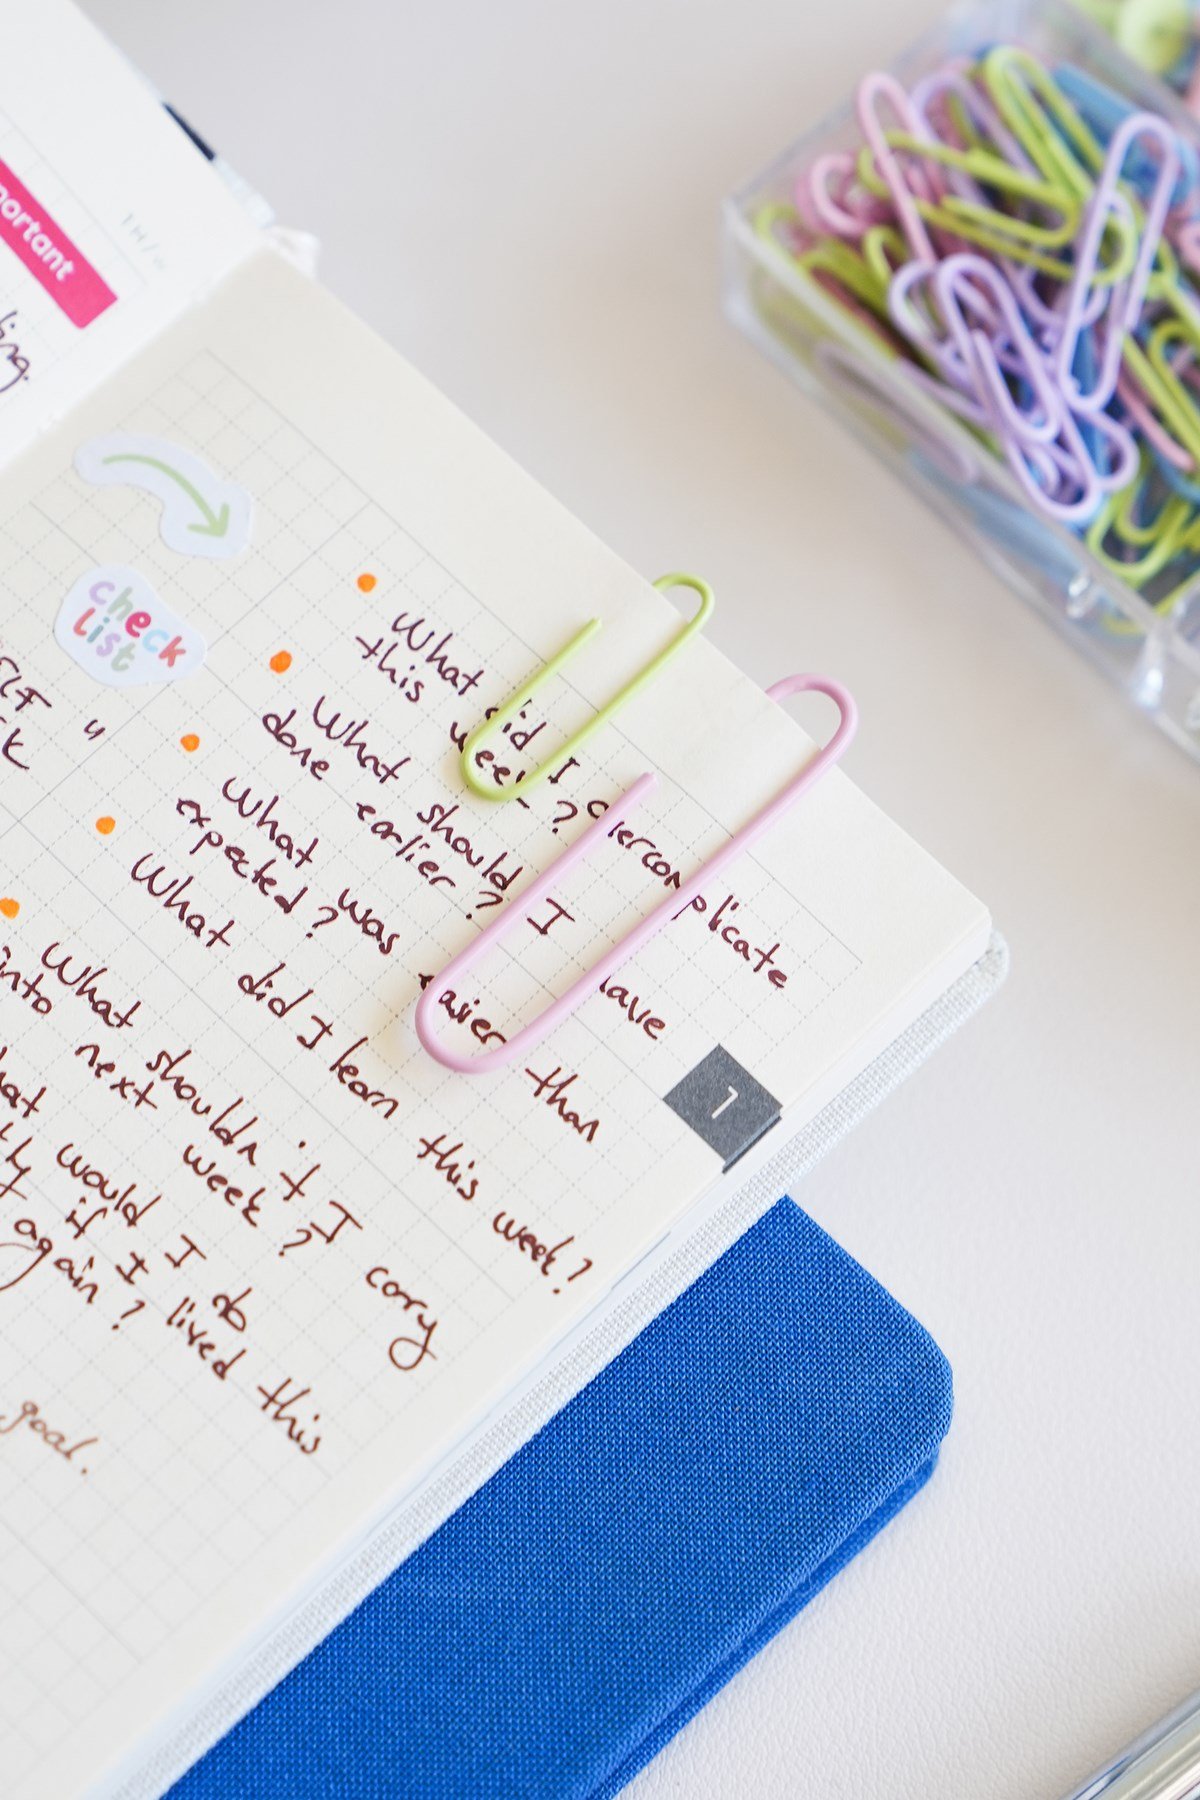 important
ling.
check
list
SELF "
What did I overcomplicate
this week?
What should I have
done earlier?
What was easier than
expected?
What did I learn this week?
What shouldn't I cary
into next week?
What would I do
if I lived this
again?
goal.
1